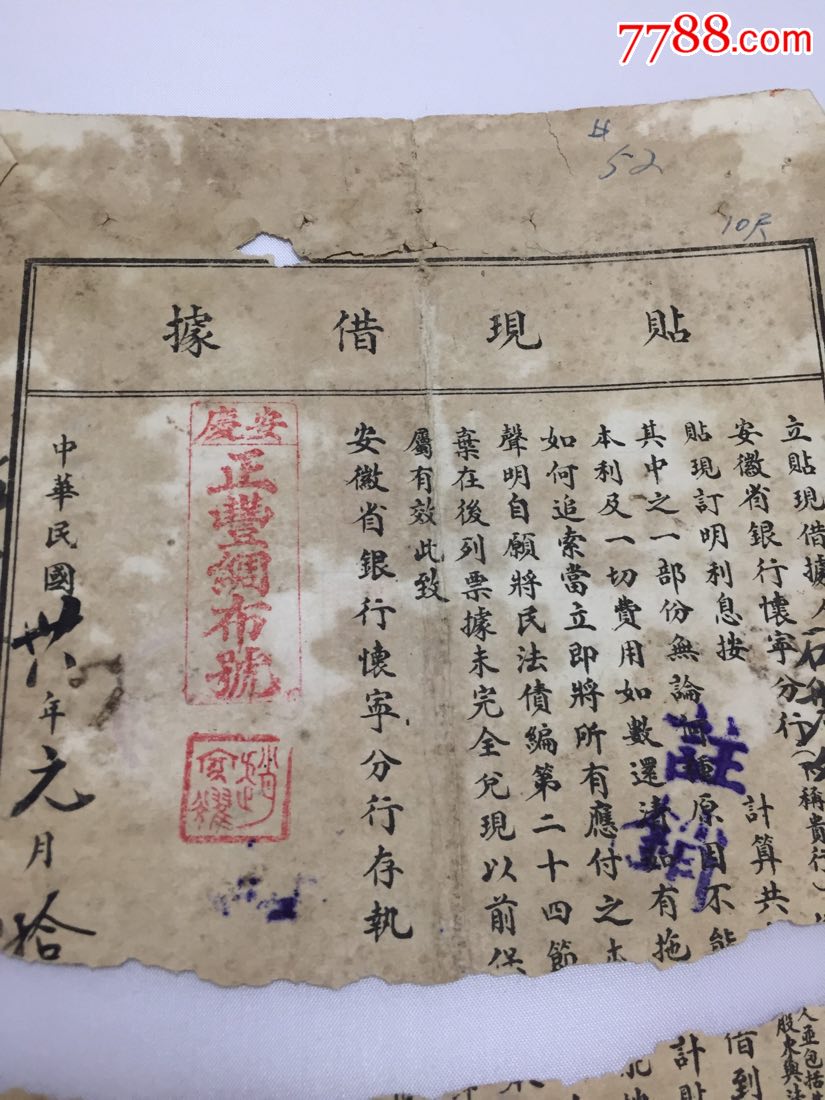 7788.com
52
10尺
貼現借據
立貼現借據人
安徽省銀行懷寧分行(稱貴行)
貼現訂明利息按 計算共
其中之一部份無論何種原因不能
本利及一切費用如數還清如有拖
如何追索當立即將所有應付之本
聲明自願將民法債編第二十四節
棄在後列票據未完全兌現以前保
屬有效此致
安徽省銀行懷寧分行存執
註銷
安慶
正豐綢布號
中華民國卅八年元月拾
人並包括
股東與法
借到
計貼